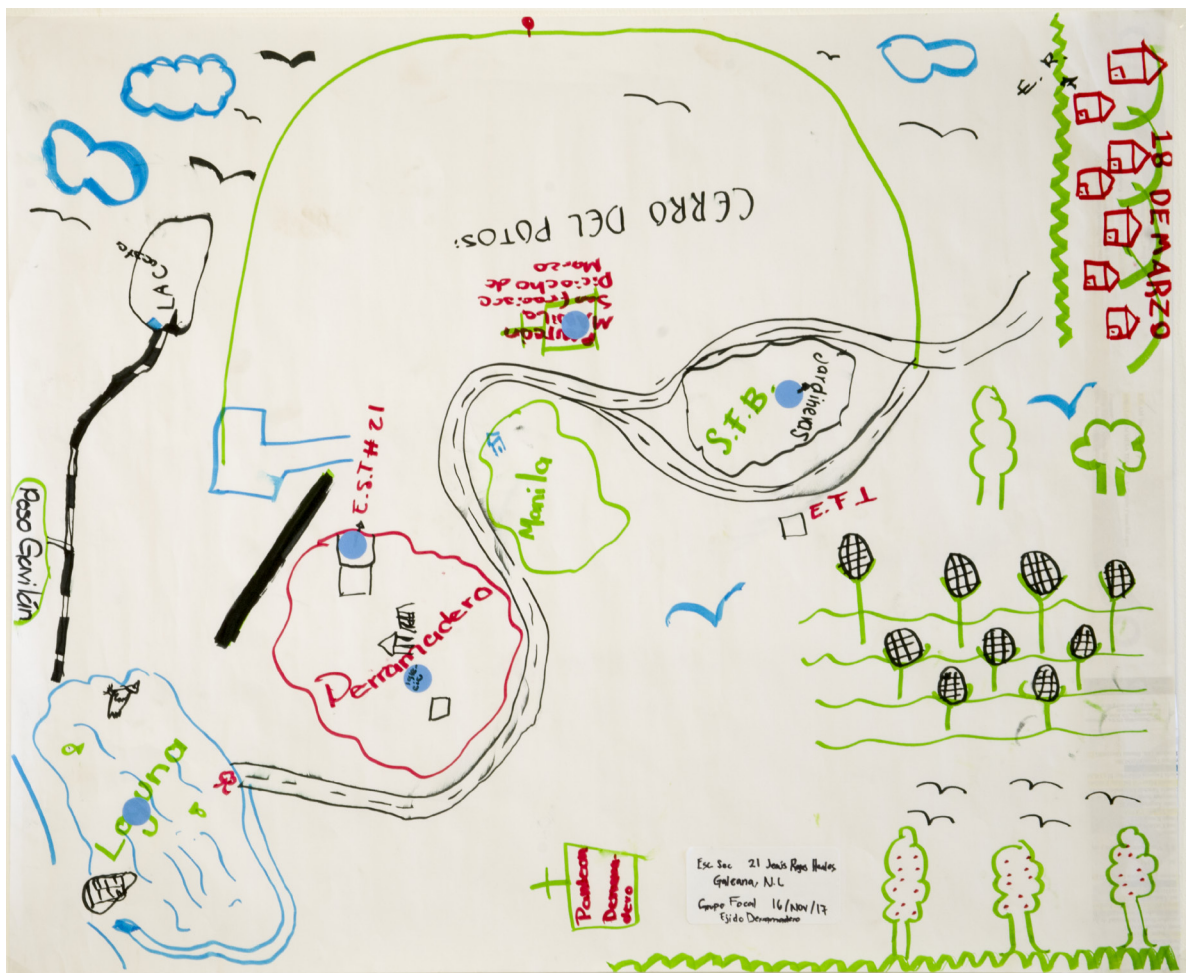 E.R.
18 DE MARZO
CERRO DEL POTOSI
Panteon
Manila
Diciocho de
Marzo
LA Costa
Jardineras
S.F.B.
E.S.T.#21
Manila
E.F.I
Poso Gavilán
Derramadero
Laguna
Panteon
Derrama-
dero
Esc Sec 21 Jesús Rojas
Galeana, N.L
Grupo Focal 16/NOV/17
Ejido Derramadero